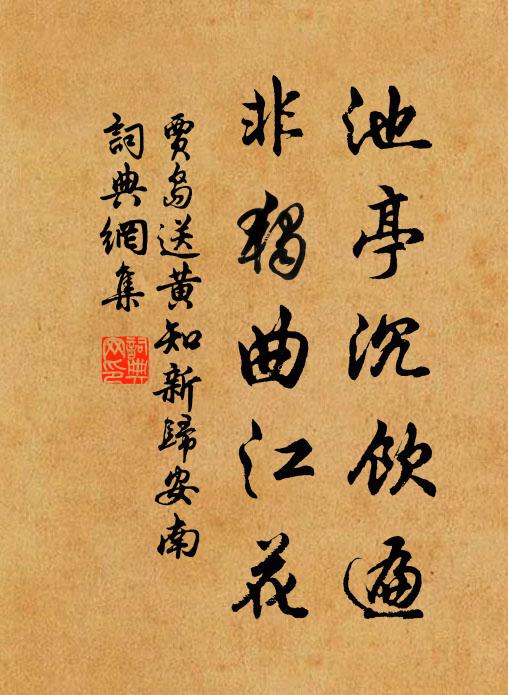 池亭沉飲遍
非獨曲江花
賈島送黃知新歸安南
詞典網集
詞典网印